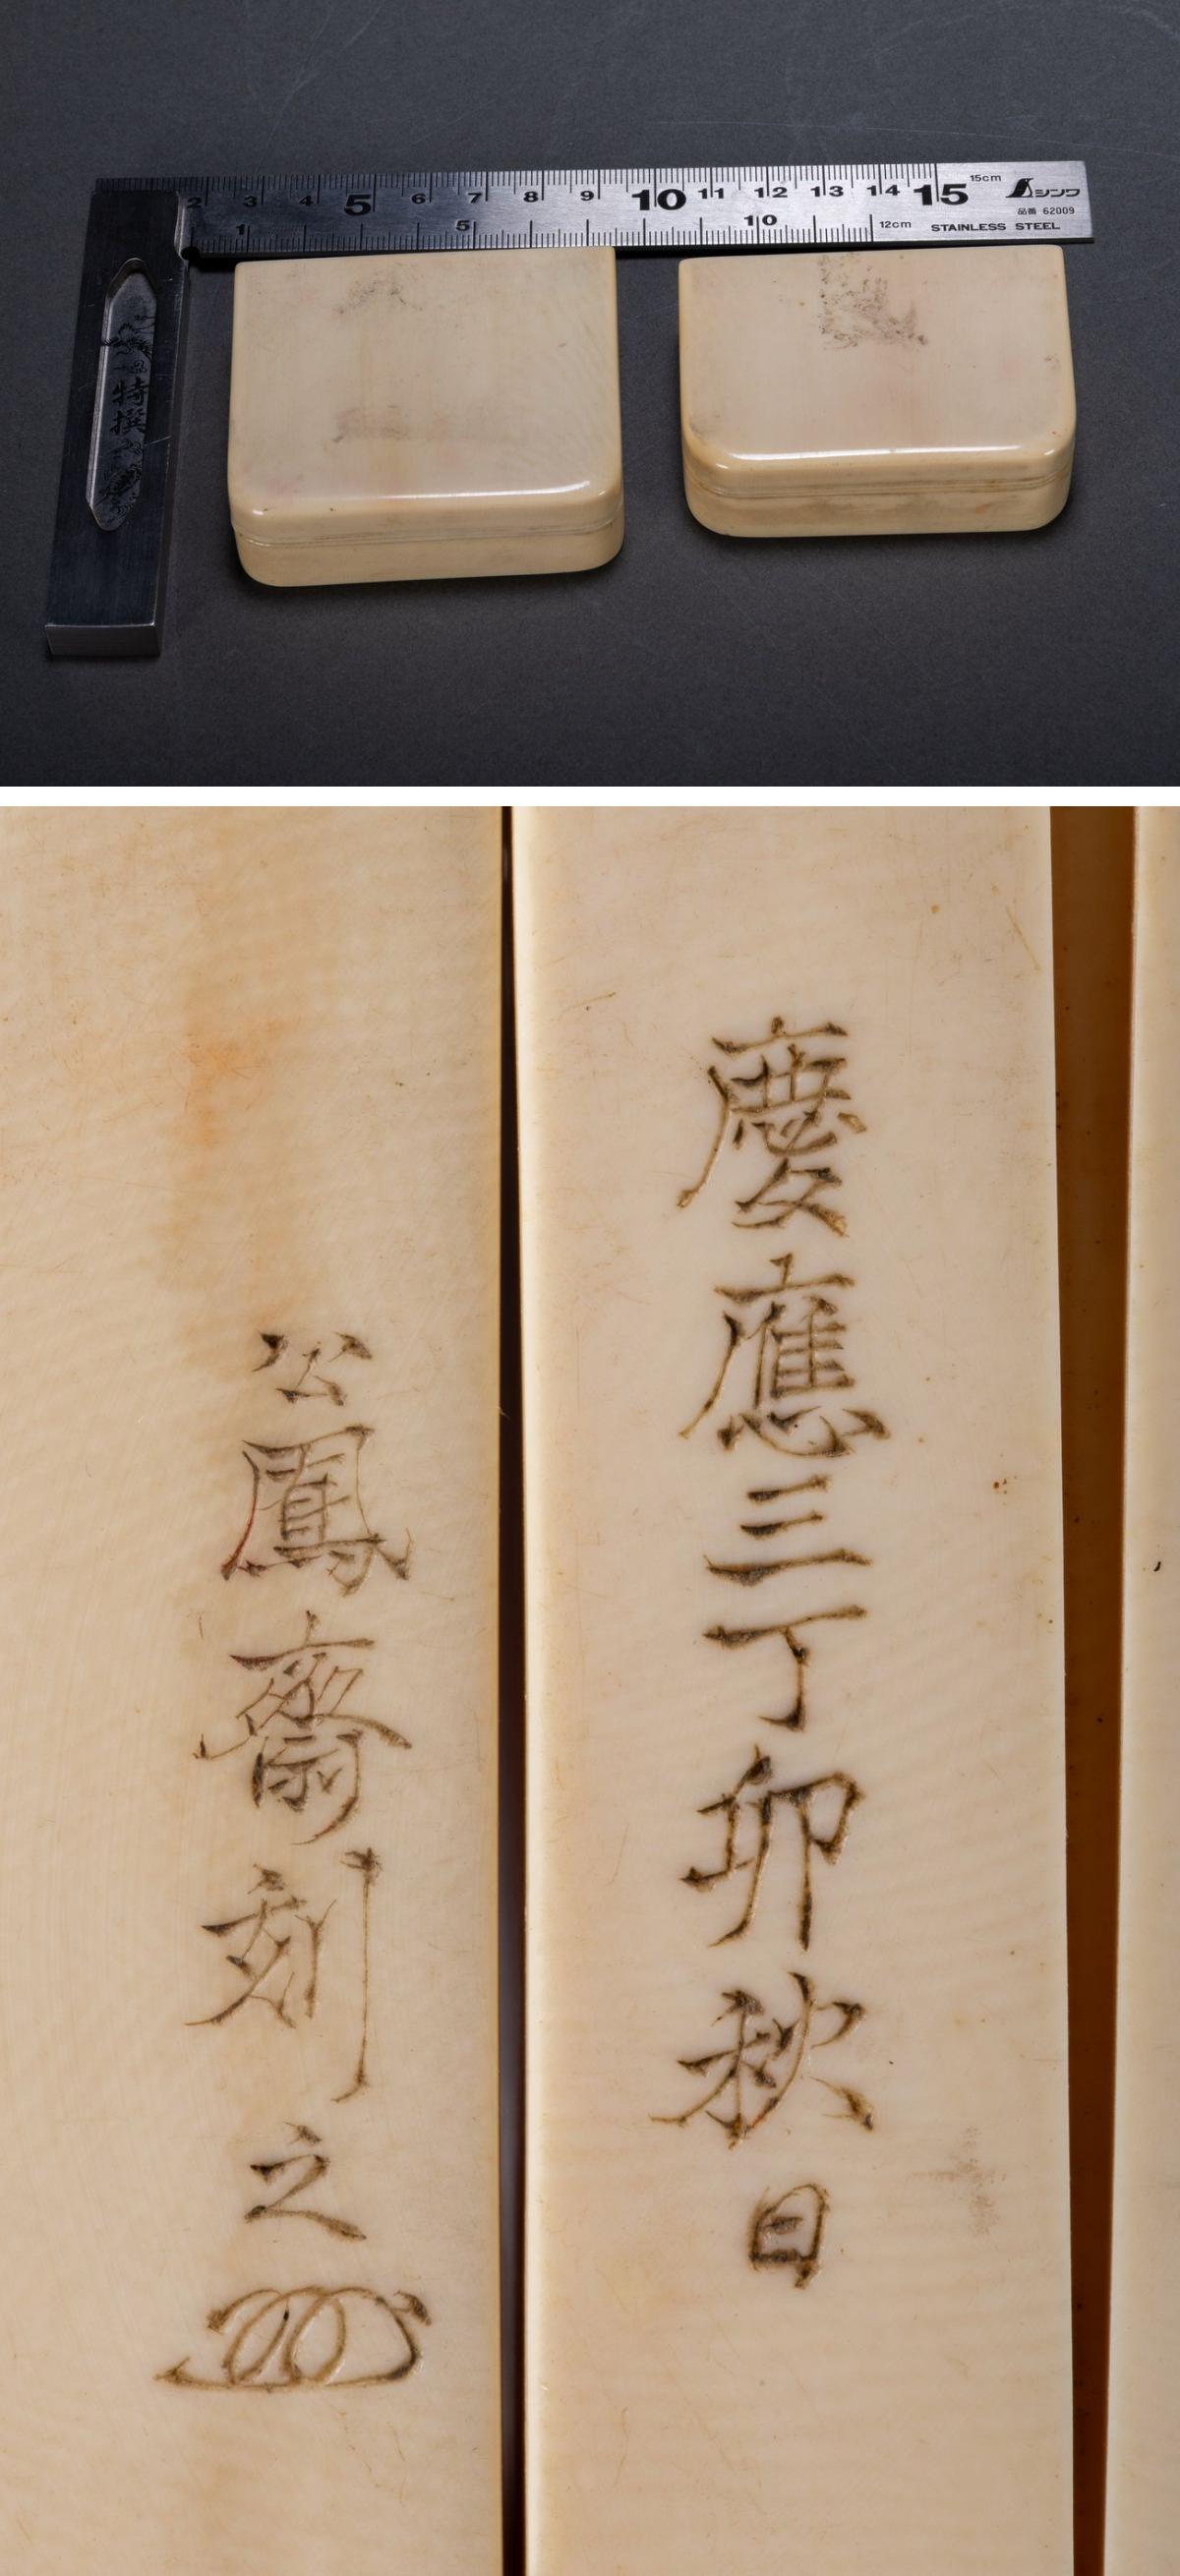 2 3 4 5 6 7 8 9 10 11 12 13 14 15 15cm シンワ
品番 62009
1 5 10 12cm STAINLESS STEEL
特撰
慶應三丁卯秋日
公鳳齋刻之